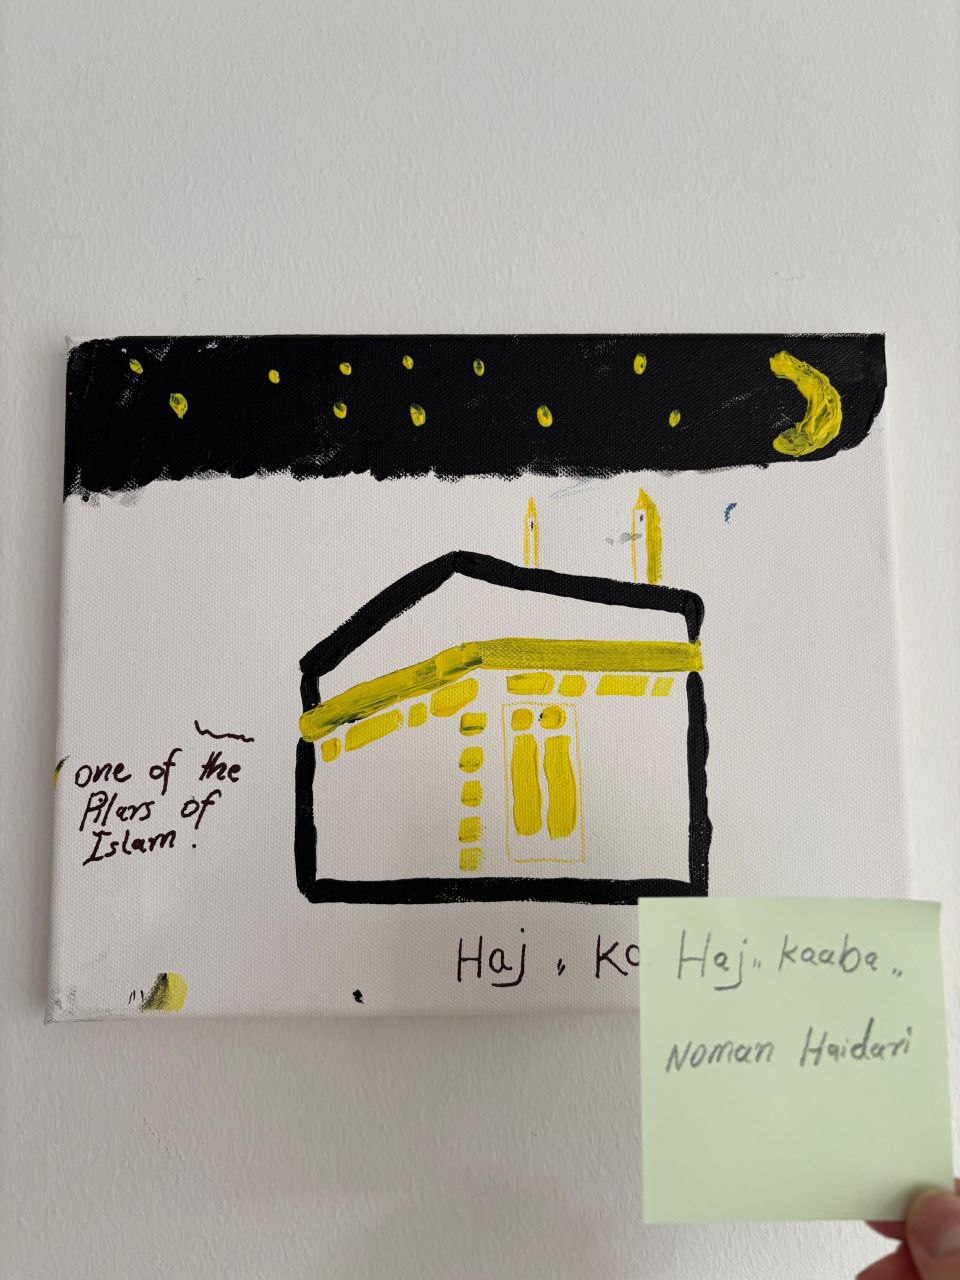 one of the
Pilars of
Islam.
Haj „ Ka
Haj„ Kaaba„
Noman Haidari